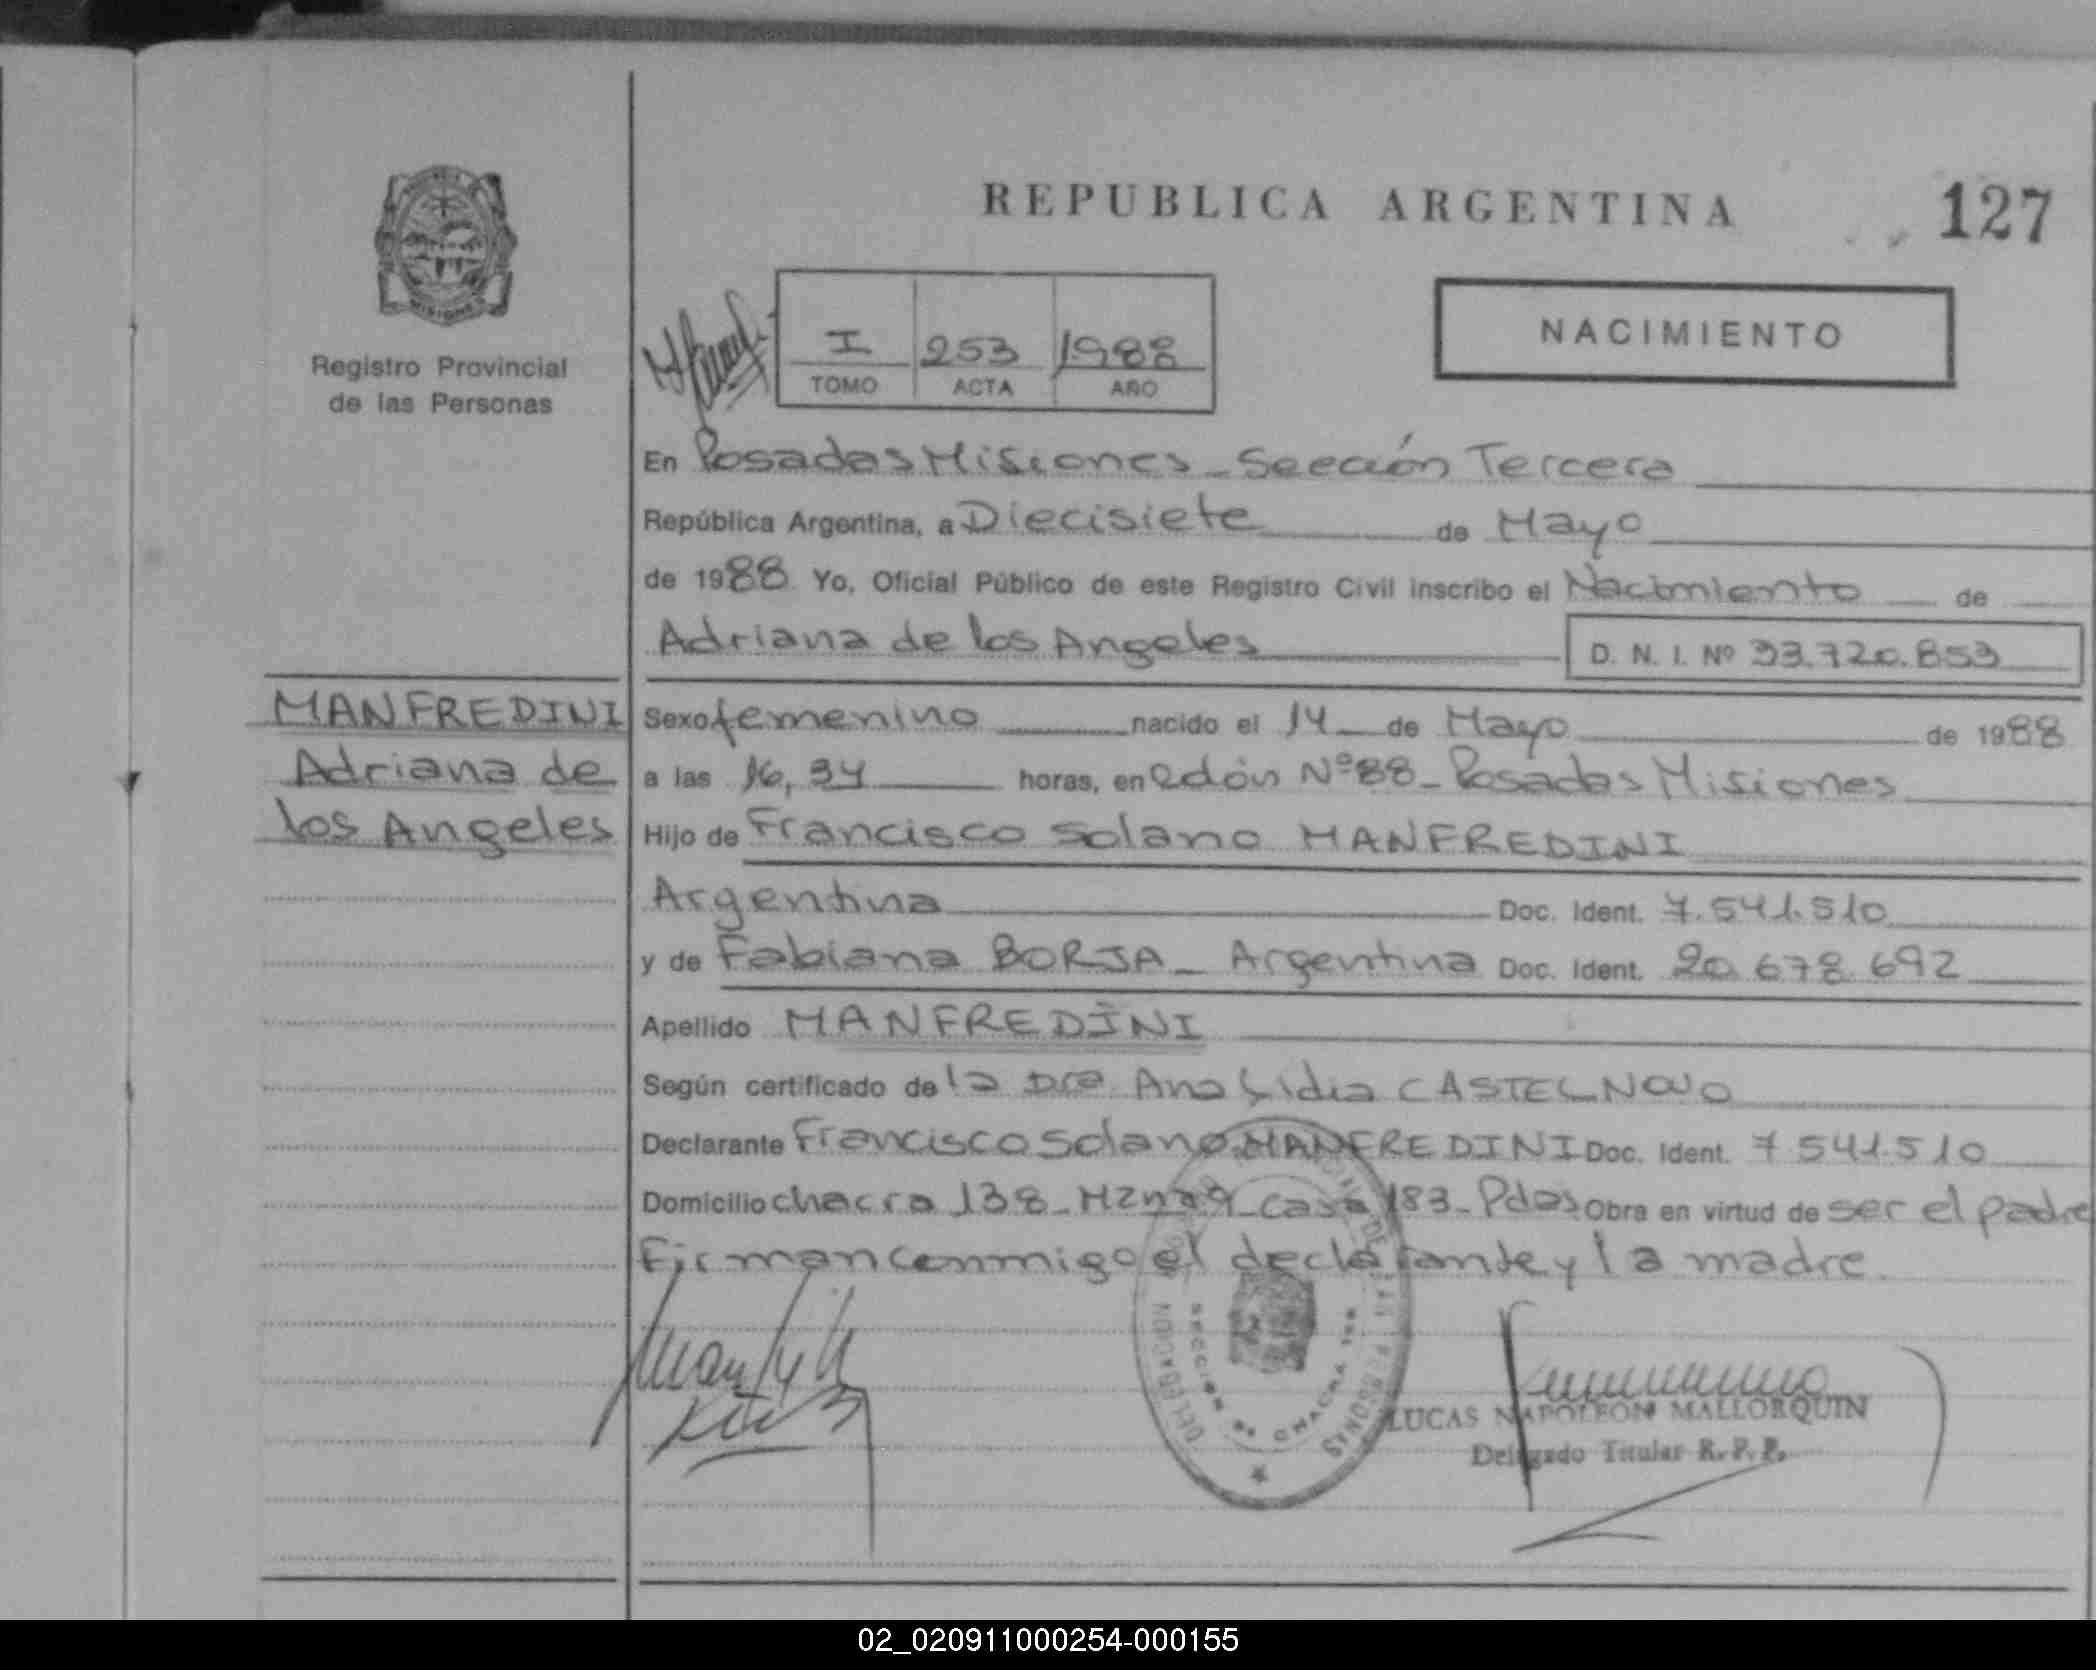 REPUBLICA ARGENTINA
127
Registro Provincial
de las Personas
I 253 1988
TOMO ACTA AÑO
NACIMIENTO
En Posadas Misiones - Sección Tercera
República Argentina, a Diecisiete de Mayo
de 1988 Yo, Oficial Público de este Registro Civil inscribo el Nacimiento de
Adriana de los Angeles D. N. I. Nº 33.720.853
MANFREDINI
Adriana de
los Angeles
Sexo femenino nacido el 14 de Mayo de 1988
a las 16,34 horas, en Nº 88 - Posadas Misiones
Hijo de Francisco Solano MANFREDINI
Argentina Doc. Ident. 7.541.510
y de Fabiana BORJA - Argentina Doc. Ident. 20.678.692
Apellido MANFREDINI
Según certificado de la Dra Ana Lidia CASTELNOVO
Declarante Francisco Solano MANFREDINI Doc. Ident. 7.541.510
Domicilio chacra 138 - Mzna 9 - casa 183 - Pdas Obra en virtud de ser el padre
Firman conmigo el declarante y la madre.
SECCION 3ª CHACRA
LUCAS NAPOLEON MALLORQUIN
Delegado Titular R. P. P.
02_020911000254-000155